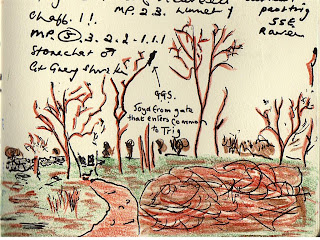 Chaff. 1!.
MP. 2.3. Linnet 1
MP. 5.3.2-2-1.1.1
SSE
Raven
Stonechat ♂
Gt Grey Shrike
GGS.
50yd from gate
that enters common
to Trig